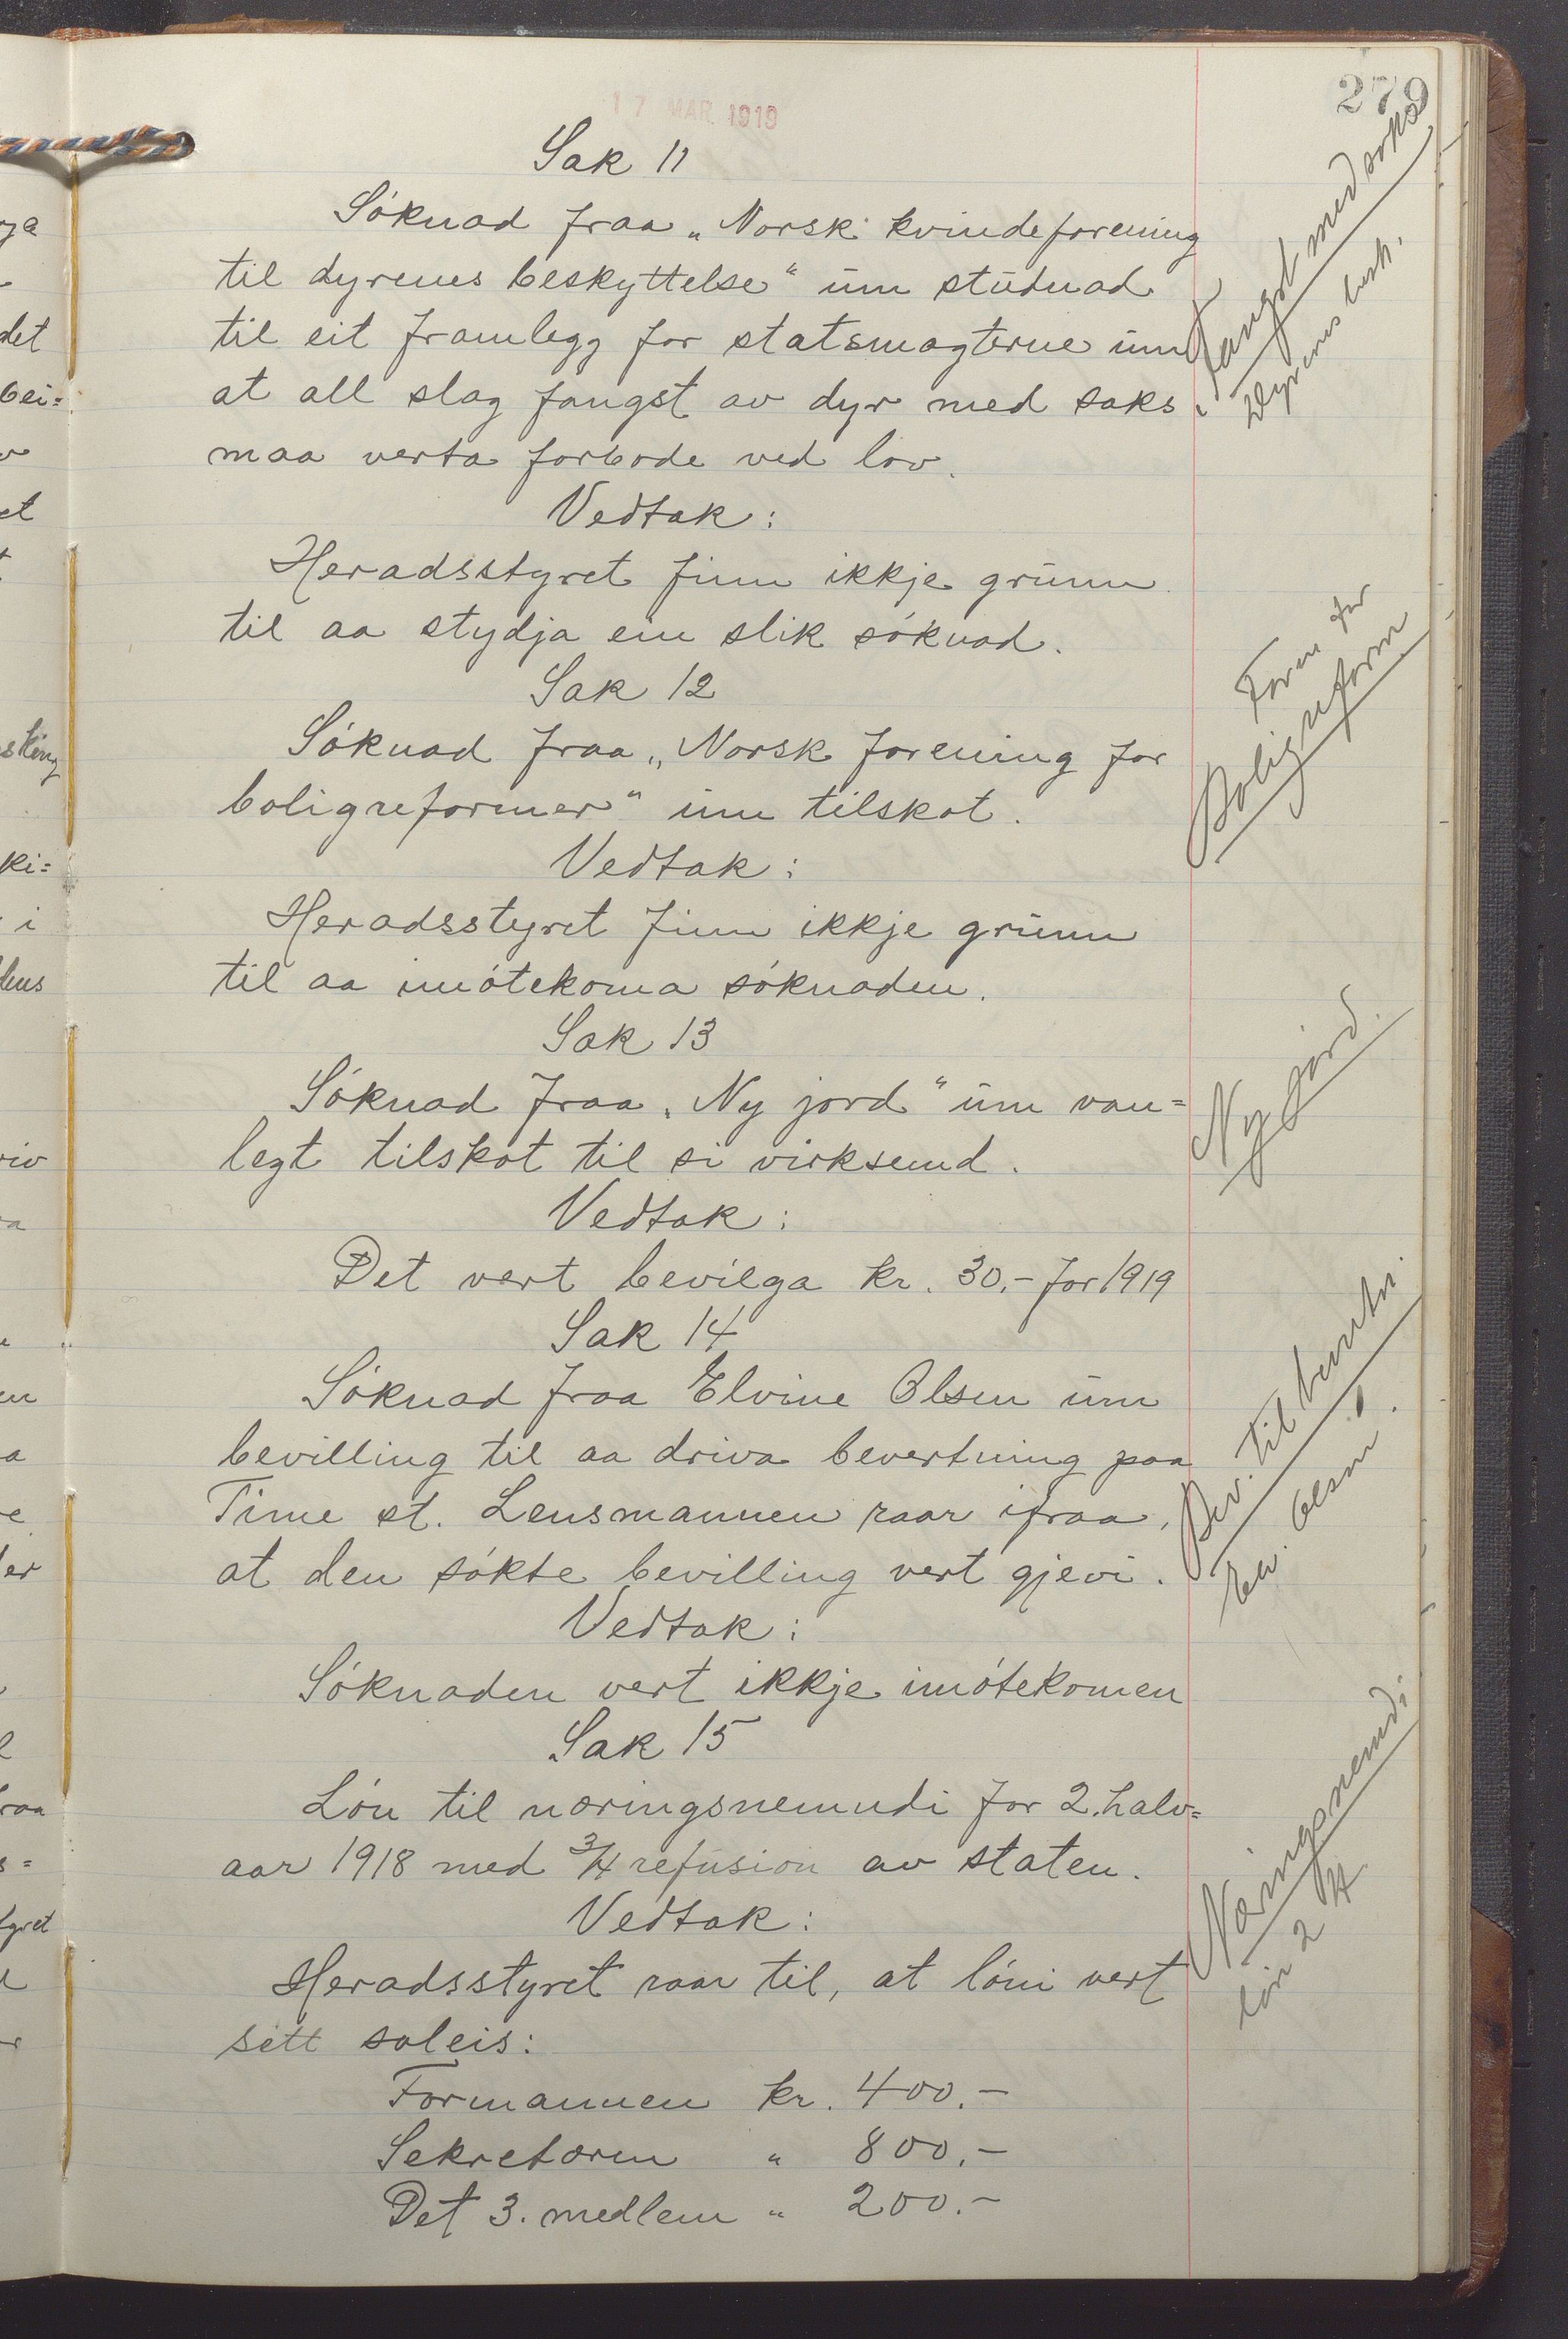 279
17 MAR. 1919
Sak 11
Søknad fraa „Norsk kvindeforening
til dyrenes beskyttelse" um studnad
til eit framlegg for statsmagterne um
at all slag fangst av dyr med saks
maa verta forbode ved lov.
Vedtak:
Heradsstyret finn ikkje grunn
til aa stydja ein slik søknad.
Fangst med saks
Dyrenes besk.
Sak 12
Søknad fraa „Norsk forening for
boligreformer" um tilskot.
Vedtak:
Heradsstyret finn ikkje grunn
til aa imøtekoma søknaden.
Foren for
Boligreform
Sak 13
Søknad fraa „Ny jord" um van=
legt tilskot til si virksemd.
Vedtak:
Det vert bevilga kr. 30.- for 1919
Ny jord.
Sak 14
Søknad fraa Elvine Olsen um
bevilling til aa driva bevertning paa
Time st. Lensmannen raar ifraa,
at den søkte bevilling vert gjevi.
Vedtak:
Søknaden vert ikkje imøtekomen
Bev. til
Olsen
Sak 15
Løn til næringsnemndi for 2. halv=
aar 1918 med 3/4 refusion av staten.
Vedtak:
Heradsstyret raar til, at løni vert
sett soleis:
Formannen kr. 400.-
Sekretæren " 800.-
Det 3. medlem " 200.-
Næringsnemdi
løn 2 H